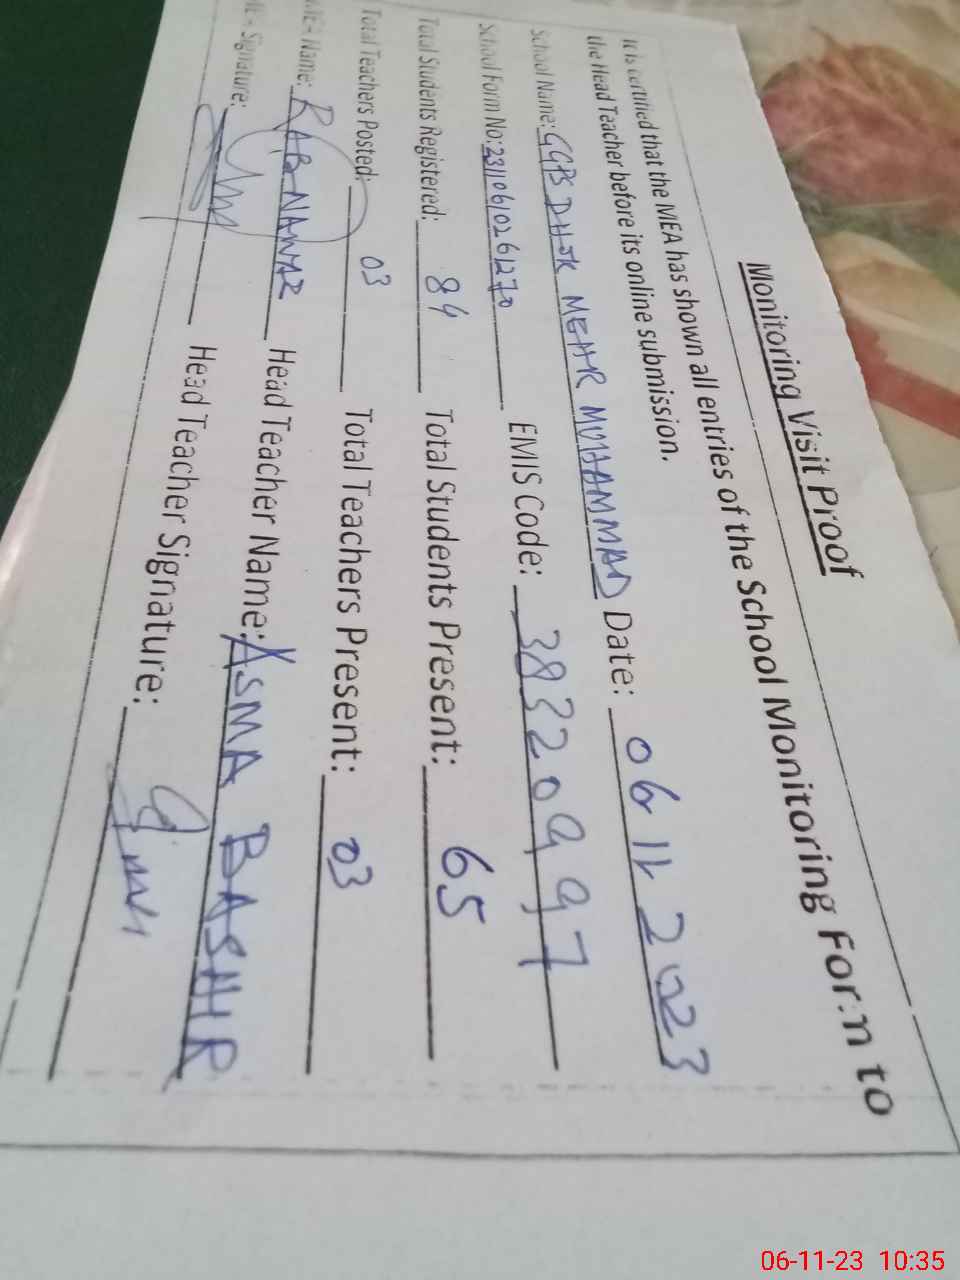 Monitoring Visit Proof
It is certified that the MEA has shown all entries of the School Monitoring Form to
the Head Teacher before its online submission.
School Name: GGPS DHOK MEHR MUHAMMAD Date: 06 11 2023
School Form No: 23110610261270 EMIS Code: 38320997
Total Students Registered: 84 Total Students Present: 65
Total Teachers Posted: 03 Total Teachers Present: 03
Name: RAB NAWAZ Head Teacher Name: ASMA BASHIR
Signature: Head Teacher Signature:
06-11-23 10:35